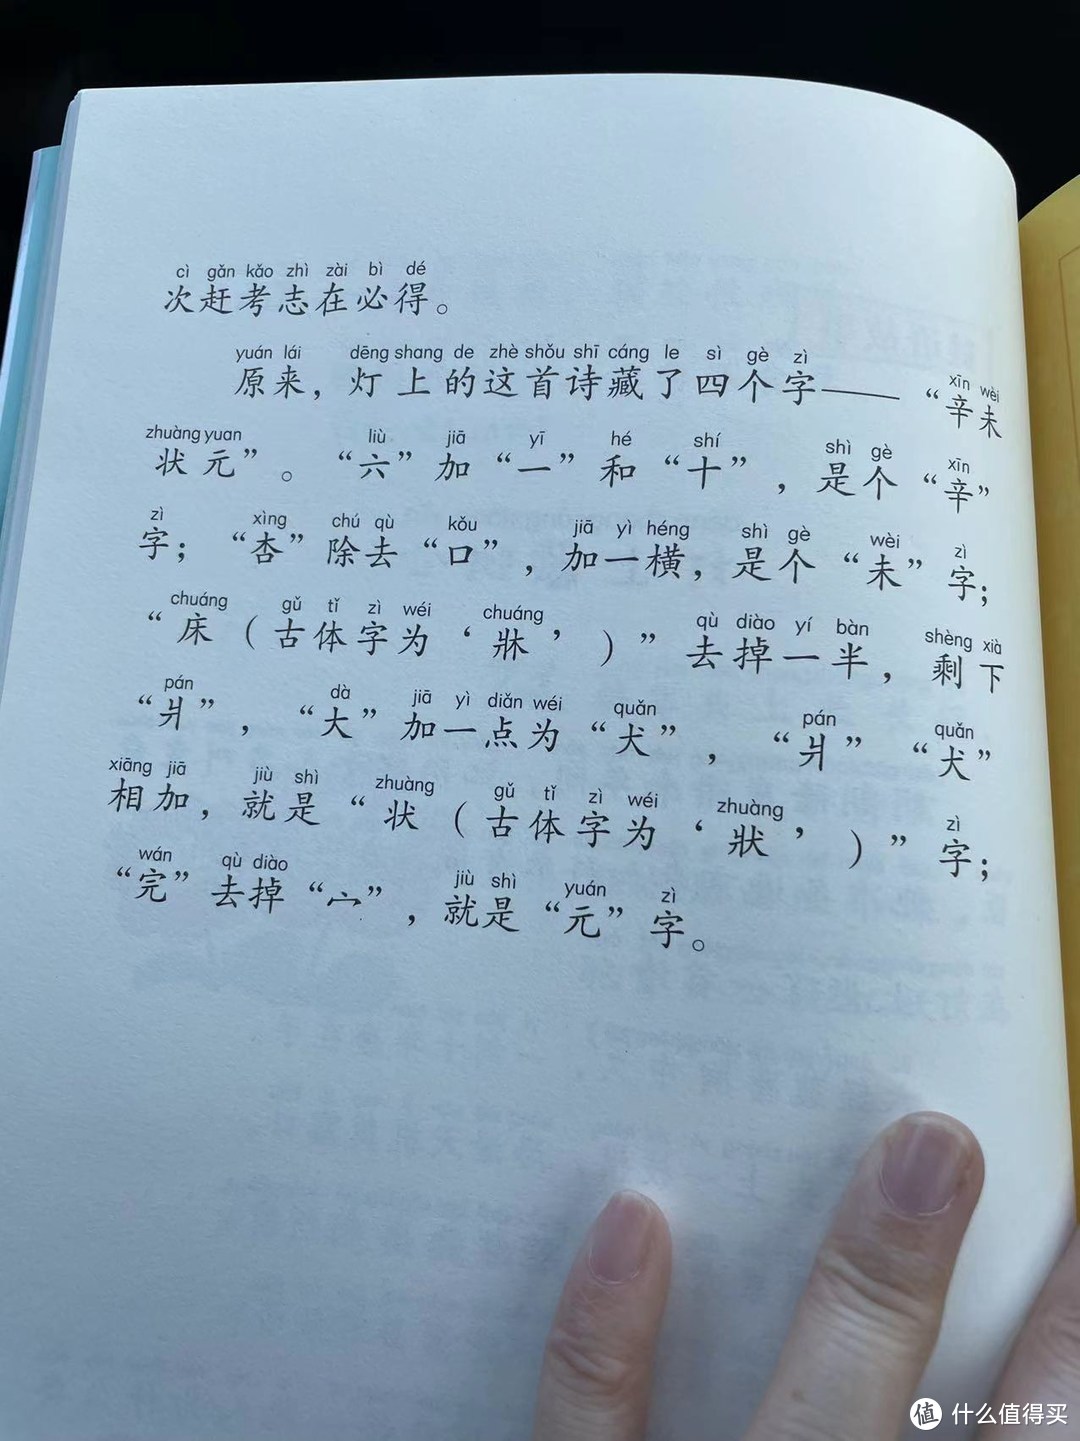 cì gǎn kǎo zhì zài bì dé
次赶考志在必得。
yuán lái dēng shang de zhè shǒu shī cáng le sì gè zì xīn wèi
原来，灯上的这首诗藏了四个字——“辛未
zhuàng yuan liù jiā yī hé shí shì gè xīn
状元”。“六”加“一”和“十”，是个“辛”
zì xìng chú qù kǒu jiā yì héng shì gè wèi zì
字；“杏”除去“口”，加一横，是个“未”字；
chuáng gǔ tǐ zì wéi chuáng qù diào yí bàn shèng xià
“床（古体字为‘牀’）”去掉一半，剩下
pán dà jiā yì diǎn wéi quǎn pán quǎn
“爿”，“大”加一点为“犬”，“爿”“犬”
xiāng jiā jiù shì zhuàng gǔ tǐ zì wéi zhuàng zì
相加，就是“状（古体字为‘狀’）”字；
wán qù diào jiù shì yuán zì
“完”去掉“宀”，就是“元”字。
值 什么值得买